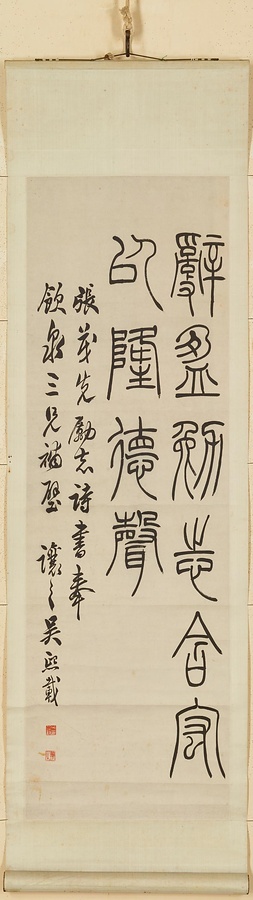 辭盈勉志含宏
以隆德聲
張茂先勵志詩書奉
飲泉三兄補壁 讓之吴熙載